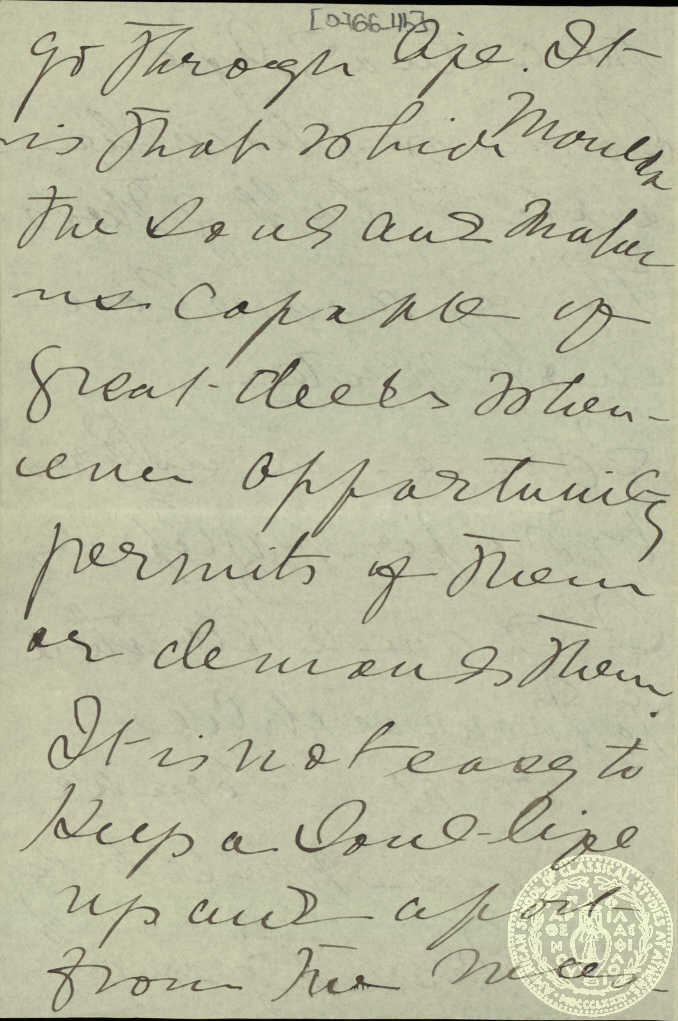 go through life. It
is that which moulds
the soul and makes
us capable of
great deeds when-
ever opportunity
permits of them
or demands them.
It is not easy to
keep a soul-life
up and apart
from the neces-
AMERICAN SCHOOL OF CLASSICAL STUDIES AT ATHENS